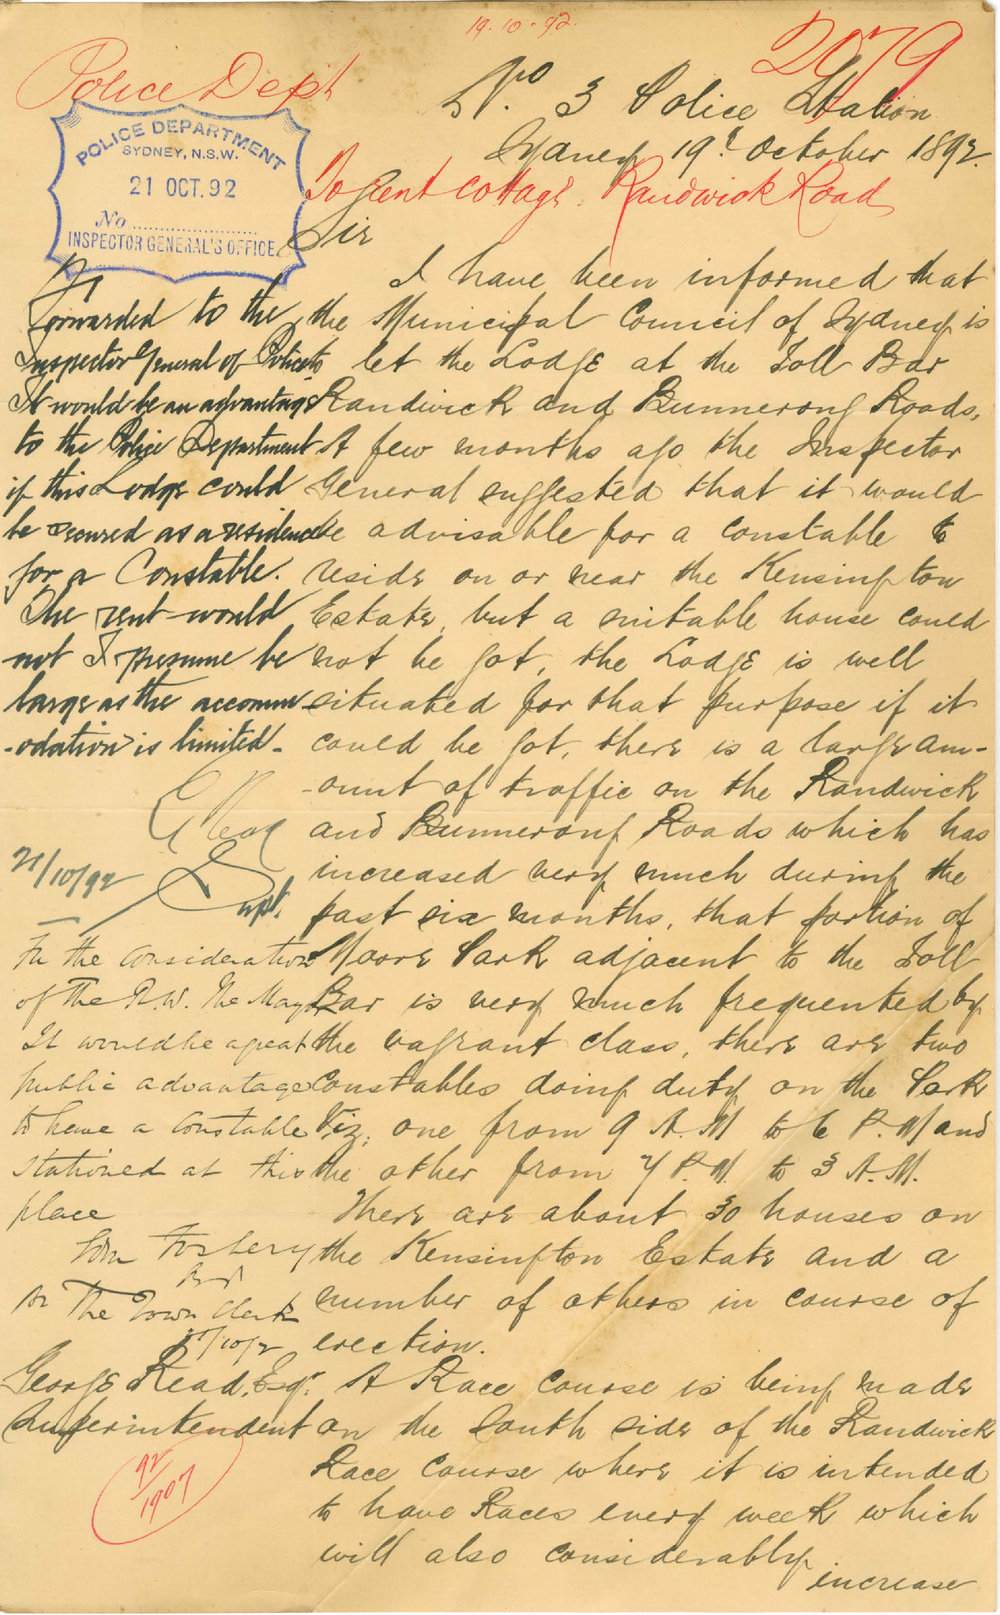 19.10.92.
2079
Police Dept
No. 3 Police Station
Sydney 19th October 1892.
POLICE DEPARTMENT
SYDNEY, N.S.W.
21 OCT. 92
No
INSPECTOR GENERAL'S OFFICE
To rent cottage. Randwick Road
Sir
I have been informed that
the Municipal Council of Sydney is
to let the Lodge at the Toll Bar
Randwick and Bunnerong Roads,
A few months ago the Inspector
General suggested that it would
be advisable for a constable to
reside on or near the Kensington
Estate, but a suitable house could
not be got, the Lodge is well
situated for that purpose if it
could be got, there is a large am-
-ount of traffic on the Randwick
and Bunnerong Roads which has
increased very much during the
past six months, that portion of
Moore Park adjacent to the Toll
Bar is very much frequented by
the vagrant class, there are two
constables doing duty on the Park
Viz; one from 9 A.M to 6 P.M and
the other from 7 P.M. to 3 A.M.
There are about 30 houses on
the Kensington Estate and a
number of others in course of
erection.
A Race course is being made
on the South side of the Randwick
Race Course where it is intended
to have Races every week which
will also considerably
increase
Forwarded to the
Inspector General of Police
It would be an advantage
to the Police Department
if this Lodge could
be secured as a residence
for a Constable.
The rent would
not I presume be
large as the accomm
-odation is limited -
G Read
Supt.
21/10/92
For the consideration
of the R.W. The Mayor
It would be a great
public advantage
to have a Constable
stationed at this
place
Fosbery
The Town Clerk
George Read, Esqr.
Superintendent
92/1907